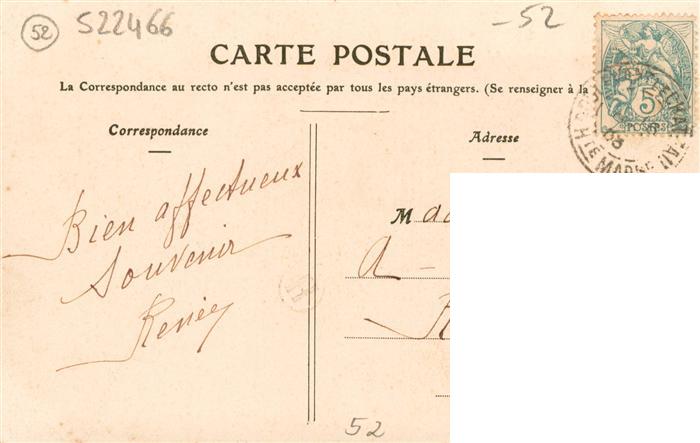 52
522466
-52
CARTE POSTALE
La Correspondance au recto n'est pas acceptée par tous les pays étrangers. (Se renseigner à la
Correspondance
Adresse
5
POSTES
HTE MARNE
Bien affectueux
Souvenir
Renée
M
a -
52